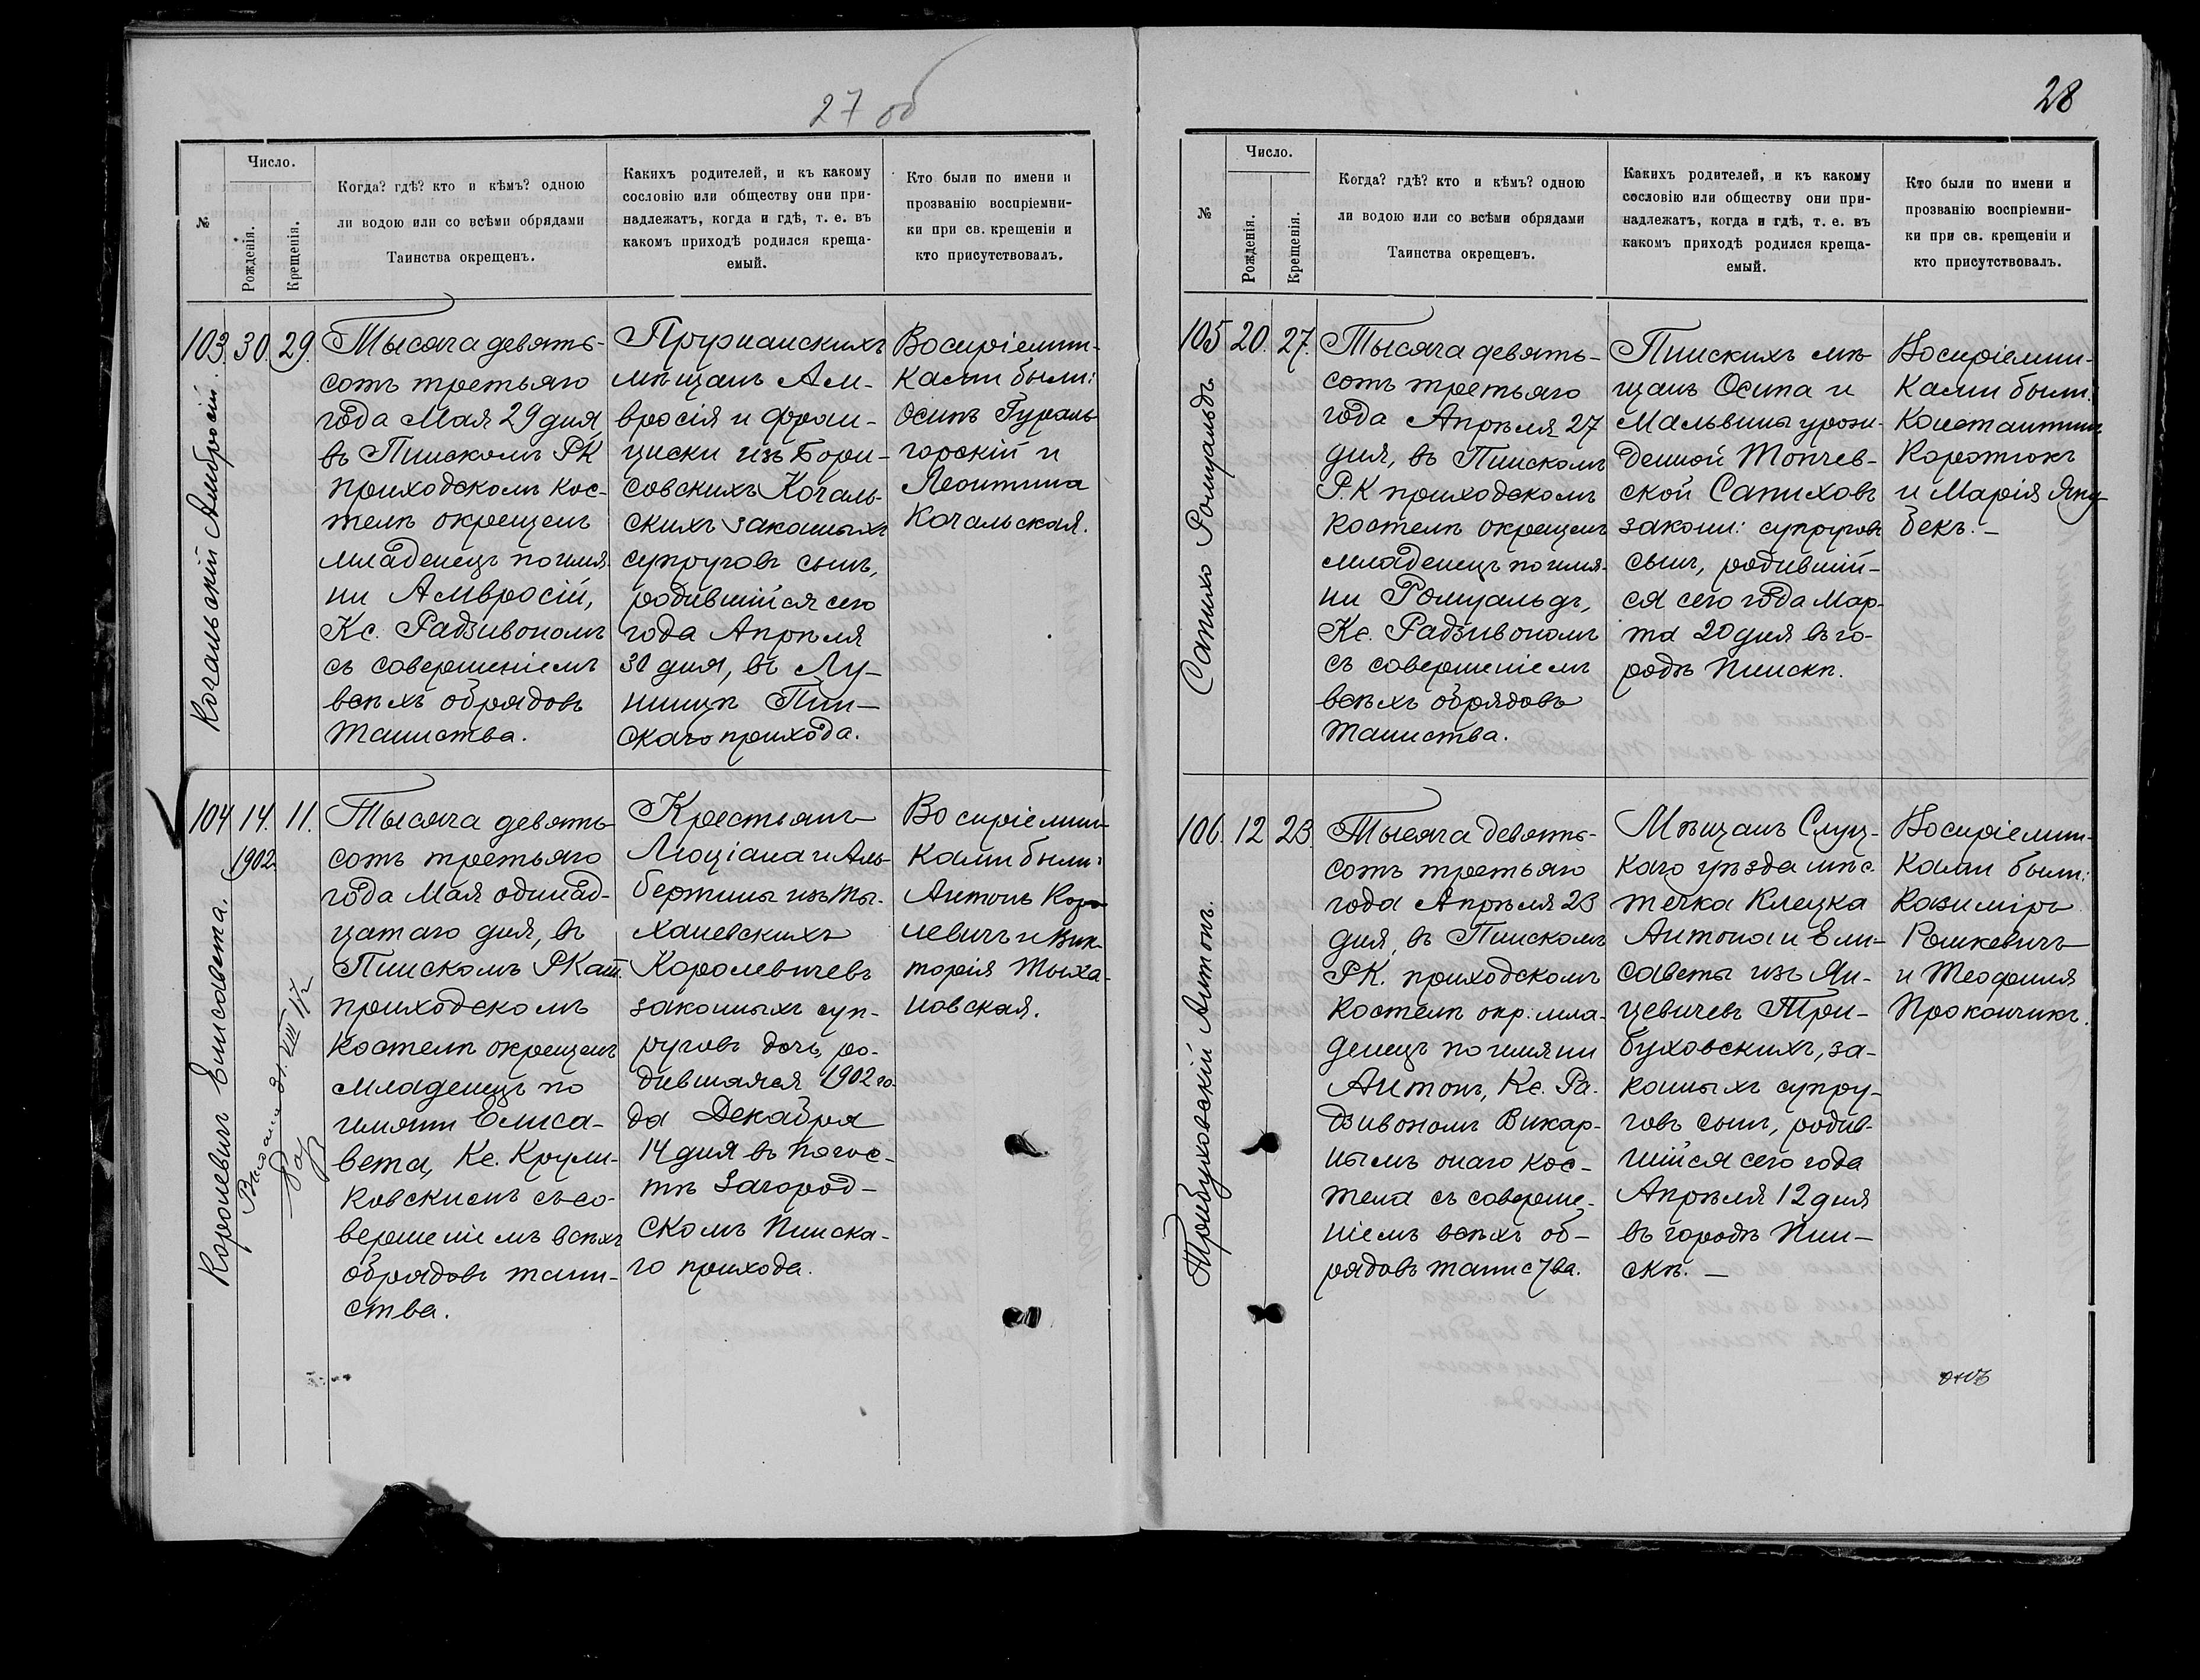 27 об
№
Число.
Рожденія.
Крещенія.
Когда? гдѣ? кто и кѣмъ? одною
ли водою или со всѣми обрядами
Таинства окрещенъ.
Какихъ родителей, и къ какому
сословію или обществу они при-
надлежатъ, когда и гдѣ, т. е. въ
какомъ приходѣ родился креща-
емый.
Кто были по имени и
прозванію воспріемни-
ки при св. крещеніи и
кто присутствовалъ.
103. 30. 29.
Кочальскій Амбросій.
Тысяча девять-
сотъ третьяго
года Мая 29 дня,
въ Пинскомъ РК
приходскомъ кос-
телѣ окрещенъ
младенецъ по имя-
ни Амвросій,
Кс. Радзивономъ
съ совершеніемъ
всѣхъ обрядовъ
таинства.
Пружанскихъ
мѣщанъ Ам-
вросія и Фран-
циски изъ Бори-
совскихъ Кочаль-
скихъ законныхъ
супруговъ сынъ,
родившійся сего
года Апрѣля
30 дня, въ Лу-
нинцѣ Пин-
скаго прихода.
Воспріемни-
ками были:
Осипъ Гураль-
горскій и
Леонтина
Кочальская.
104 14. 11.
1902.
Королевичъ Елисавета.
21. VIII 17 г
Тысяча девять-
сотъ третьяго
года Мая одинад-
цатаго дня, въ
Пинскомъ РКат.
приходскомъ
костелѣ окрещенъ
младенецъ по
имяни Елиса-
вета, Кс. Крули-
ковскимъ съ со-
вершеніемъ всѣхъ
обрядовъ таин-
ства.
Крестьянъ
Люціана и Аль-
бертины изъ Ты-
хановскихъ
Королевичевъ
законныхъ суп-
руговъ дочь, ро-
дившаяся 1902 го-
да Декабря
14 дня въ Погос-
тѣ Загород-
скомъ Пинска-
го прихода.
Воспріемни-
ками были:
Антонъ Коро-
левичъ и Вик-
торія Тыха-
новская.
28
№
Число.
Рожденія.
Крещенія.
Когда? гдѣ? кто и кѣмъ? одною
ли водою или со всѣми обрядами
Таинства окрещенъ.
Какихъ родителей, и къ какому
сословію или обществу они при-
надлежатъ, когда и гдѣ, т. е. въ
какомъ приходѣ родился креща-
емый.
Кто были по имени и
прозванію воспріемни-
ки при св. крещеніи и
кто присутствовалъ.
105 20. 27.
Сапихо Ромуальдъ
Тысяча девять-
сотъ третьяго
года Апрѣля 27
дня, въ Пинскомъ
Р.К приходскомъ
костелѣ окрещенъ
младенецъ по имя-
ни Ромуальдъ,
Кс. Радзивономъ
съ совершеніемъ
всѣхъ обрядовъ
таинства.
Пинскихъ мѣ-
щанъ Осипа и
Мальвины урож-
денной Топчев-
ской Сапиховъ
законн: супруговъ
сынъ, родившій-
ся сего года Мар-
та 20 дня въ го-
родѣ Пинскѣ.
Воспріемни-
ками были:
Константинъ
Коротюкъ
и Марія Яку-
бекъ. -
106. 12 23.
Трибуховскій Антонъ.
Тысяча девять-
сотъ третьяго
года Апрѣля 23
дня, въ Пинскомъ
РК. приходскомъ
костелѣ окр: мла-
денецъ по имяни
Антонъ, Кс. Ра-
дзивономъ Викар-
нымъ онаго кос-
тела съ соверше-
ніемъ всѣхъ об-
рядовъ таинства.
Мѣщанъ Слуц-
каго уѣзда мѣс-
течка Клецка
Антона и Ели-
саветы изъ Ян-
цевичевъ Три-
буховскихъ, за-
конныхъ супру-
говъ сынъ, родив-
шійся сего года
Апрѣля 12 дня
въ городѣ Пин-
скѣ. -
Воспріемни-
ками были:
Казиміръ
Рошкевичъ
и Теофиля
Прокончикъ.